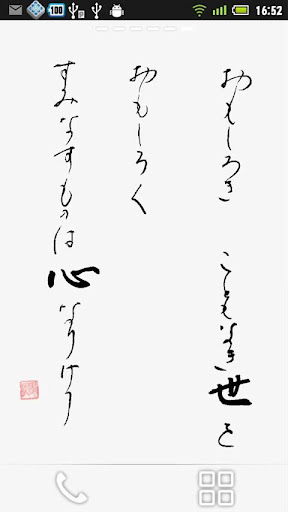 100
16:52
おもしろき こともなき世を
おもしろく
すみなすものは心なりけり